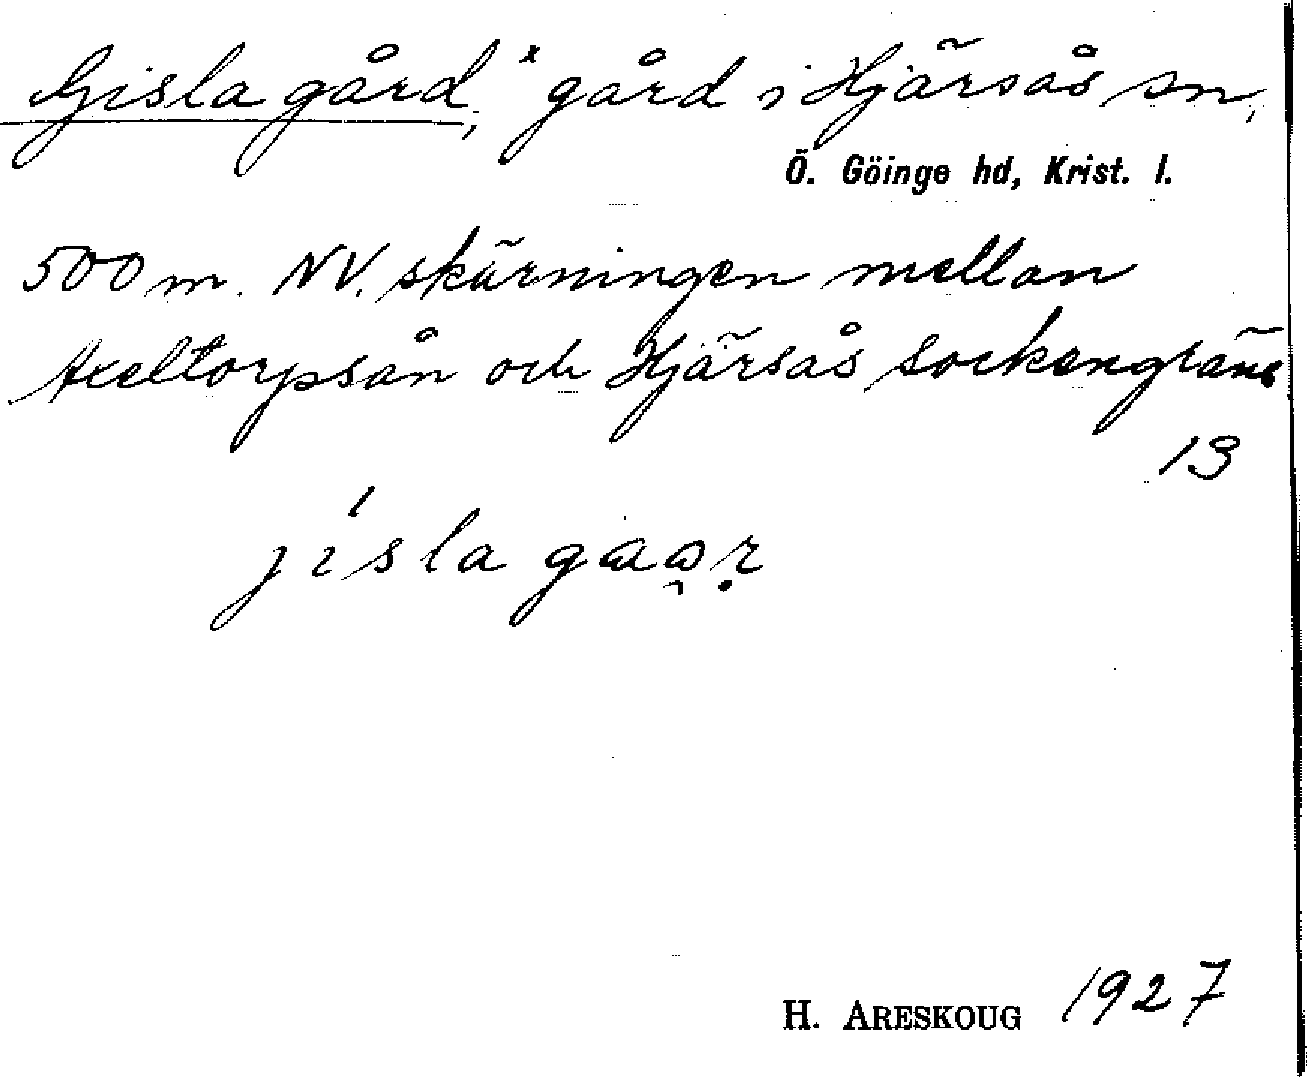 Gisla gård, x gård i Hjärsås sn,
Ö. Göinge hd, Krist. l.
500 m. NV. skärningen mellan
Axeltorpsån och Hjärsås sockengräns
13
jísla gaar
H. ARESKOUG 1927